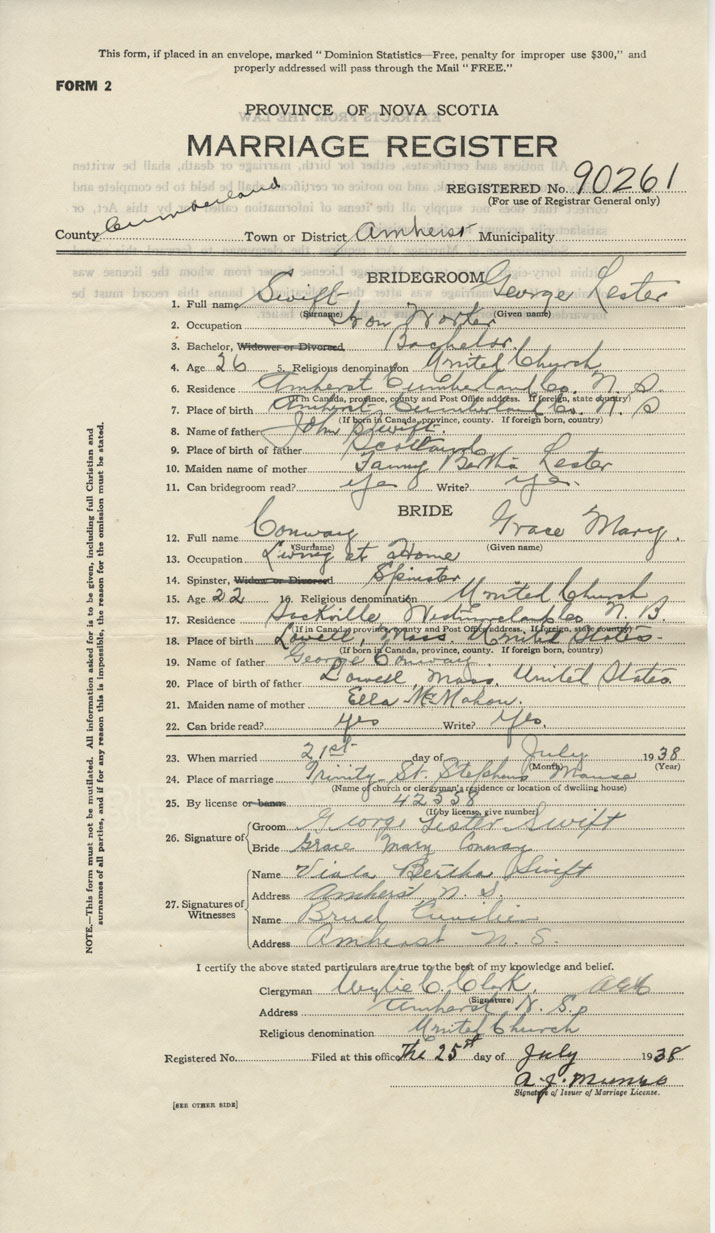 This form, if placed in an envelope, marked “ Dominion Statistics—Free, penalty for improper use $300,” and
properly addressed will pass through the Mail “ FREE.”
FORM 2
PROVINCE OF NOVA SCOTIA
MARRIAGE REGISTER
REGISTERED No. 90261
(For use of Registrar General only)
County Cumberland Town or District Amherst Municipality
BRIDEGROOM
1. Full name Swift George Lester
(Surname) (Given name)
2. Occupation Iron Worker
3. Bachelor, Widower or Divorced Bachelor.
4. Age 26 5. Religious denomination United Church
6. Residence Amherst Cumberland Co. N. S.
(If in Canada, province, county and Post Office address. If foreign, state country)
7. Place of birth Amherst Cumberland Co. N. S
(If born in Canada, province, county. If foreign born, country)
8. Name of father John Swift.
9. Place of birth of father Scotland
10. Maiden name of mother Fanny Bertha Lester
11. Can bridegroom read? yes Write? yes.
BRIDE
12. Full name Conway Grace Mary.
(Surname) (Given name)
13. Occupation Living at Home
14. Spinster, Widow or Divorced Spinster
15. Age 22 16. Religious denomination United Church
17. Residence Sackville N. B.
(If in Canada, province, county and Post Office address. If foreign, state country)
18. Place of birth Lowell, Mass. United States-
(If born in Canada, province, county. If foreign born, country)
19. Name of father George Conway
20. Place of birth of father Lowell, Mass. United States.
21. Maiden name of mother Ella McMahon.
22. Can bride read? yes Write? Yes.
23. When married 21st day of July 1938
(Month) (Year)
24. Place of marriage Trinity-St. Stephens Manse
(Name of church or clergyman's residence or location of dwelling house)
25. By license or banns 42558
(If by license, give number)
26. Signature of
Groom George Lester Swift
Bride Grace Mary Conway
27. Signatures of Witnesses
Name Viola Bertha Swift
Address Amherst N. S.
Name
Address Amherst N. S.
I certify the above stated particulars are true to the best of my knowledge and belief.
Clergyman Wylie C. Clark.
(Signature)
Address Amherst N. S.
Religious denomination United Church
Registered No. Filed at this office The 25st day of July 1938
A. J. Munro
Signature of Issuer of Marriage License.
[SEE OTHER SIDE]
NOTE.—This form must not be mutilated. All information asked for is to be given, including full Christian and
surnames of all parties, and if for any reason this is impossible, the reason for the omission must be stated.